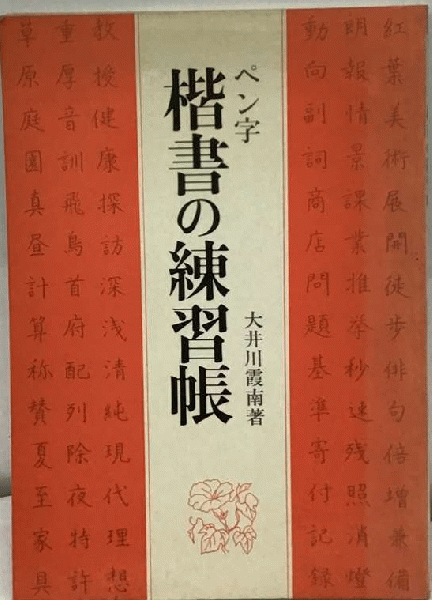 紅葉美術展開徒歩俳句倍増兼備
明報情景課業推挙秒速残照消燈
動向副詞商店問題基準寄付記録
ペン字
楷書の練習帳
大井川霞南著
教授健康探訪深浅清純現代理想
重厚音訓飛鳥首府配列除夜特許
草原庭園真昼計算称賛夏至家具